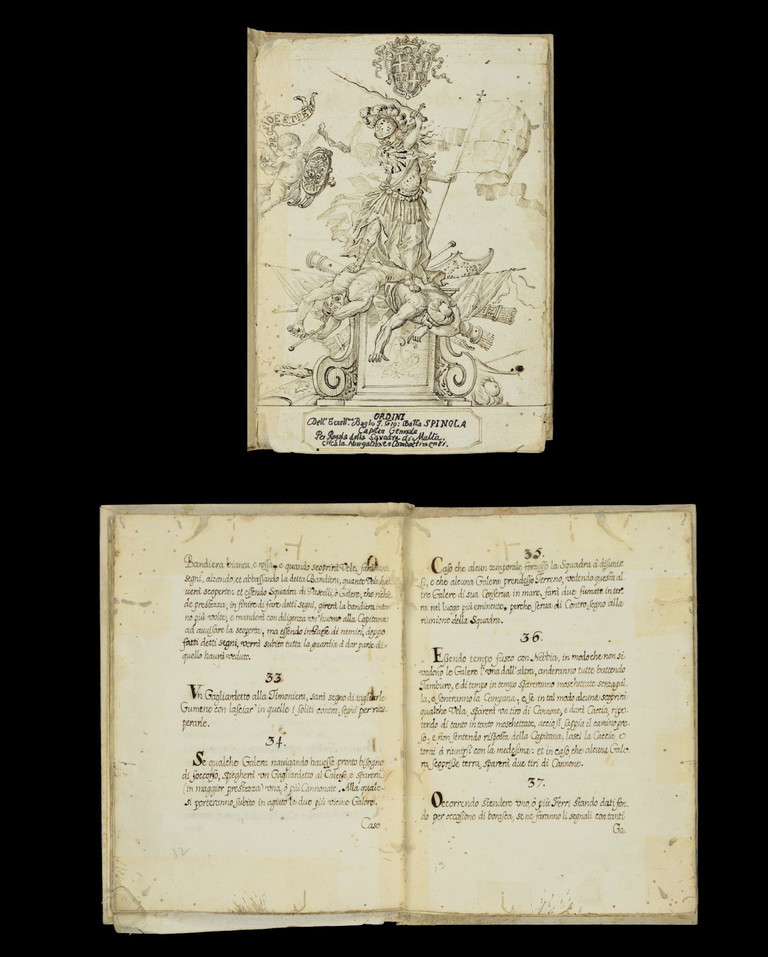 PRO FIDE ET
ORDINI
Dell' Eccell.mo Baglo F. Gio: Batta SPINOLA
Capitan Generale
Per Regola della Squadra di Malta
circa la Navigatione e Combattimenti.
Bandiera bianca, e rossa, e quando scoprirà Vele, farà
segni, alzando, et abbassando la detta Bandiera, quante Vele hau
uerà scoperte: et essendo Squadra di Vascelli, ò Galere, che richie
de prestezza, in finire di fare detti segni, girerà la bandiera intor
no più volte, e manderà con diligenza vn'huomo alla Capitana
ad auuisare la scoperta, ma essendo in Paese di nemici, doppo
fatti detti segni, verrà subito tutta la guardia à dar parte di
quello haurà veduto.
33
Vn Gagliardetto alla Timoniera, sarà segno di tagliarle
Gumene con lasciar' in quelle i soliti contra segni per ricu
perarle.
34.
Se qualche Galera nauigando hauesse pronto bisogno
di soccorso, spiegherà vn Gagliardetto al Calcese, e sparerà
(in maggior prestezza) vna, ò più Cannonate. Alla quale
si porteranno subito in agiuto le due più vicine Galere.
Caso
35.
Caso che alcun temporale forzasse la Squadra à disunir
si, e che alcuna Galera prendesse Terreno, vedendo questa al
tre Galere di sua Conserua in mare, farà due fumate in ter
ra nel luogo più eminente, perche serua di Contro segno alla
riunione della Squadra.
36.
Essendo tempo fusco con Nebbia, in modo che non si
vedono le Galere l'vna dall'altra, anderanno tutte battendo
Tamburo, e di tempo in tempo spareranno moschettate senza pal
la, e soneranno la Campana, e se in tal modo alcuna scoprirà
qualche Vela, sparerà vn tiro di Cannone, e darà Caccia, ripe
tendo di tanto in tanto moschettate, acciò si sappia il camino pre
so, e non sentendo risposta della Capitana, lasci la Caccia e
torni à riunirsi con la medesima: et in caso che alcuna Gale
ra scoprisse terra, sparerà due tiri di Cannone.
37.
Occorrendo stendere vno, ò più Ferri stando dati fon
do per occasione di borasca, se ne faranno li segnali con tanti
Ga.